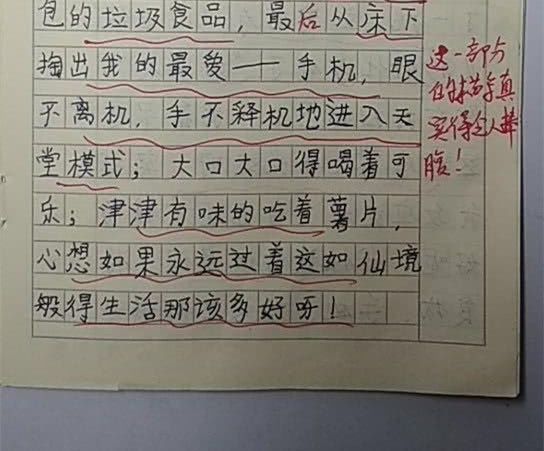 包的垃圾食品，最后从床下
掏出我的最爱——手机，眼
不离机，手不释机地进入天
堂模式；大口大口得喝着可
乐；津津有味的吃着薯片，
心想如果永远过着这如仙境
般得生活那该多好呀！
这一部分
的描写真
实得令人捧
腹！